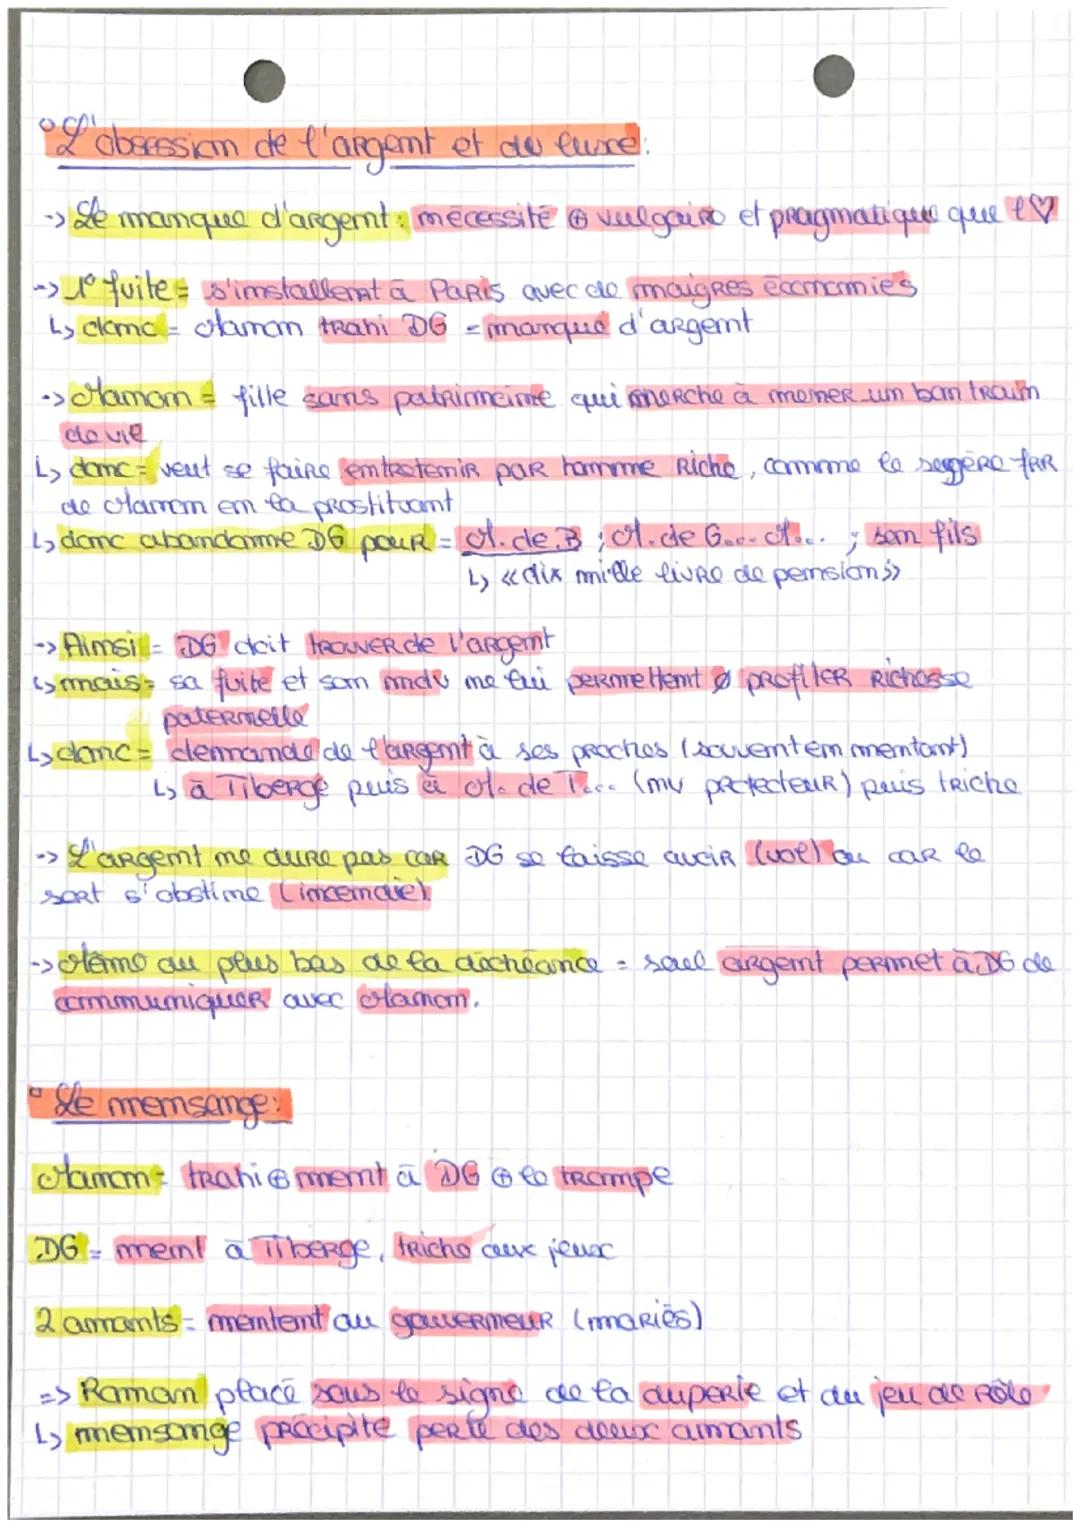 ° L'obsession de l'argent et du luxe:
-> Le manque d'argent: nécessité ⊕ vulgaire et pragmatique que l'♡
-> 1° fuite = s'installent à Paris avec de maigres économies
↳ donc = Manon trahi DG = manque d'argent
-> Manon = fille sans patrimoine qui cherche à mener un bon train
de vie
↳ donc = veut se faire entretenir par homme riche, comme le suggère frr
de Manon en la prostituant
↳ donc abandonne DG pour = M. de B ; M. de G... M... ; son fils
↳ «dix mille livre de pension»
-> Ainsi = DG doit trouver de l'argent
↳ mais = sa fuite et son mdv ne lui permettent ø profiter richesse
paternelle
↳ donc = demande de l'argent à ses proches (souvent en mentant)
↳ à Tiberge puis à M. de T... (nv protecteur) puis triche
-> L'argent ne dure pas car DG se laisse avoir (vol) ou car le
sort s'obstine (incendie)
-> Même au plus bas de la déchéance = seul argent permet à DG de
communiquer avec Manon.
° Le mensonge:
Manon = trahi ⊕ ment à DG ⊕ le trompe
DG = ment à Tiberge, triche aux jeux
2 amants = mentent au gouverneur (mariés)
=> Roman placé sous le signe de la duperie et du jeu de rôle
↳ mensonge précipite perte des deux amants